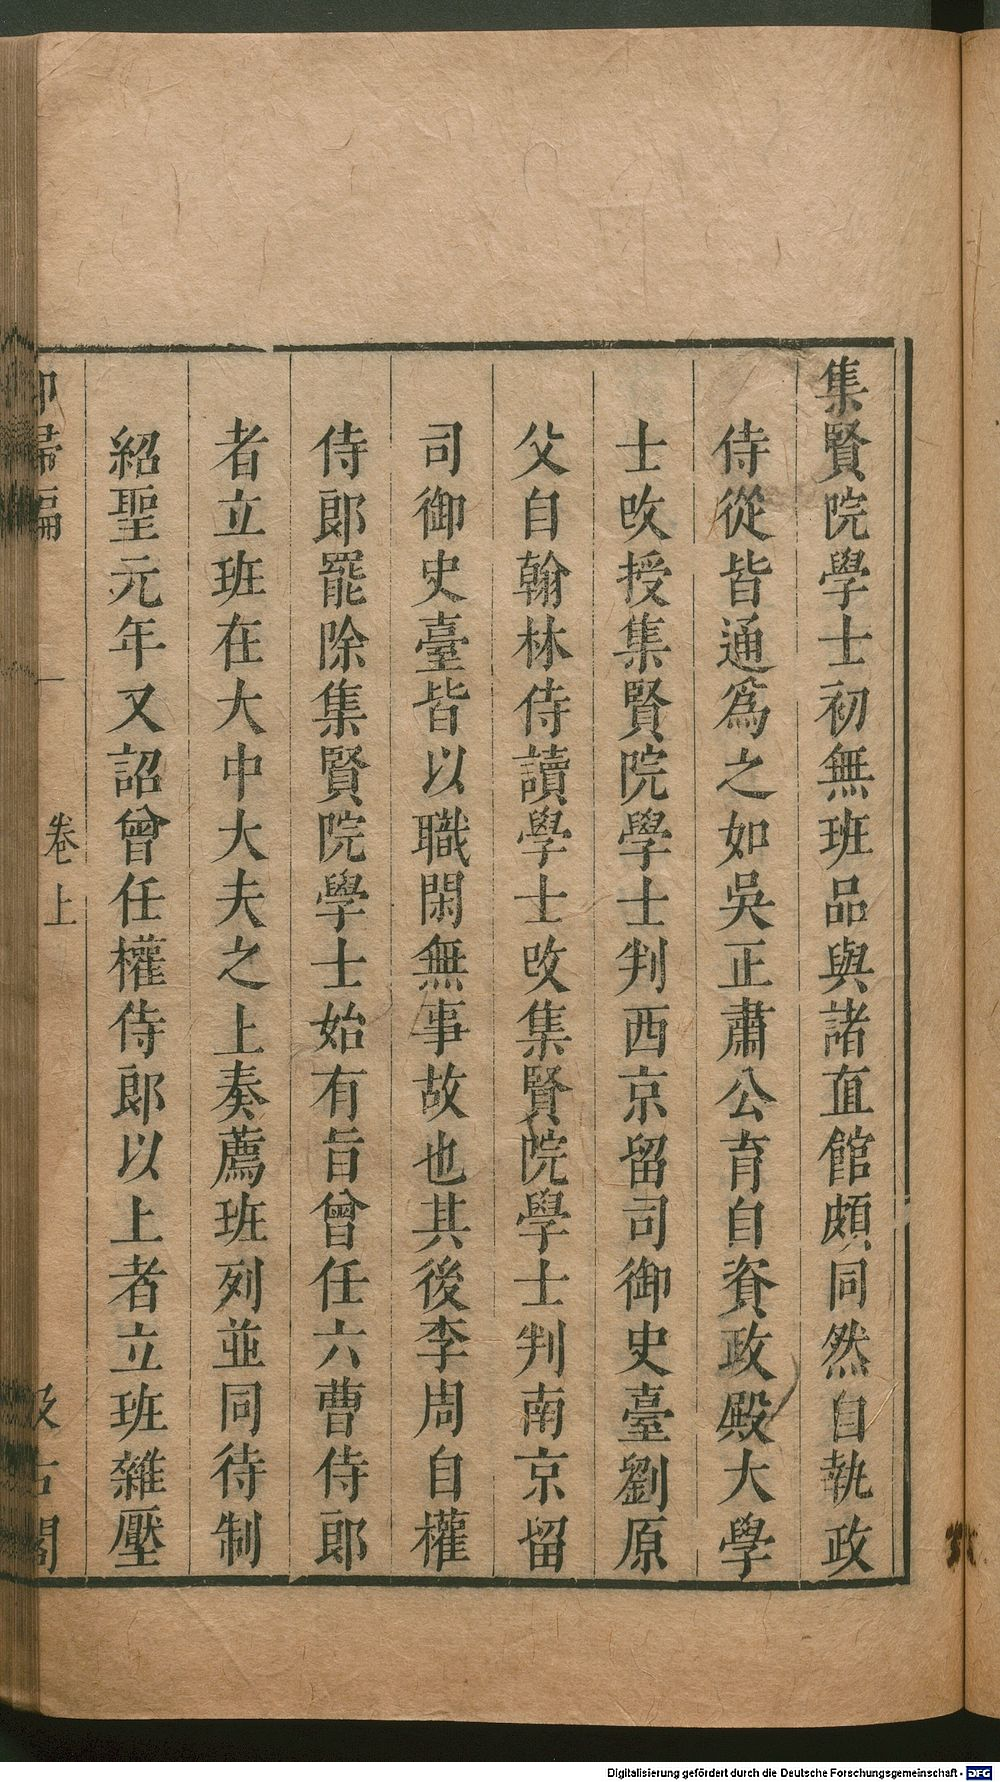 集賢院學士初無班品與諸直館頗同然自執政
侍從皆通爲之如吳正肅公育自資政殿大學
士改授集賢院學士判西京留司御史臺劉原
父自翰林侍讀學士改集賢院學士判南京留
司御史臺皆以職閑無事故也其後李周自權
侍郎罷除集賢院學士始有旨曾任六曹侍郎
者立班在大中大夫之上奏薦班列並同待制
紹聖元年又詔曾任權侍郎以上者立班雜壓
卻掃編
卷上
汲古閣
Digitalisierung gefördert durch die Deutsche Forschungsgemeinschaft - DFG